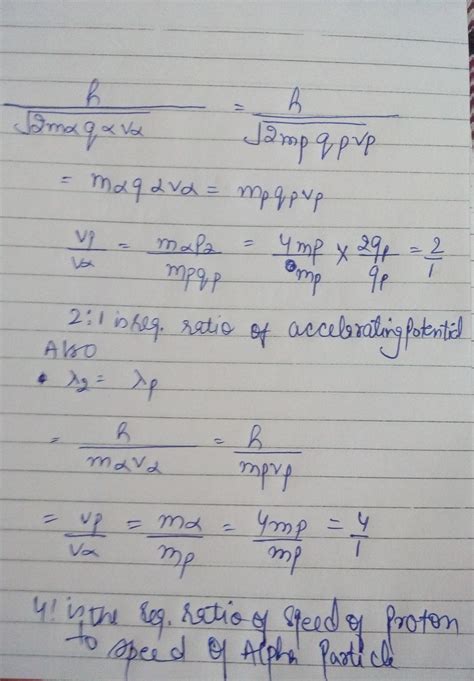 h/√2mα qα vα = h/√2mp qp vp
= mα qα vα = mp qp vp
vp/vα = mαp2/mpqp = 4mp/mp × 2qp/qp = 2/1
2:1 is req. ratio of accelerating potential
Also
• λ2 = λp
= h/mαvα = h/mpvp
= vp/vα = mα/mp = 4mp/mp = 4/1
4! is the req. ratio of speed of proton
to speed of Alpha Particle